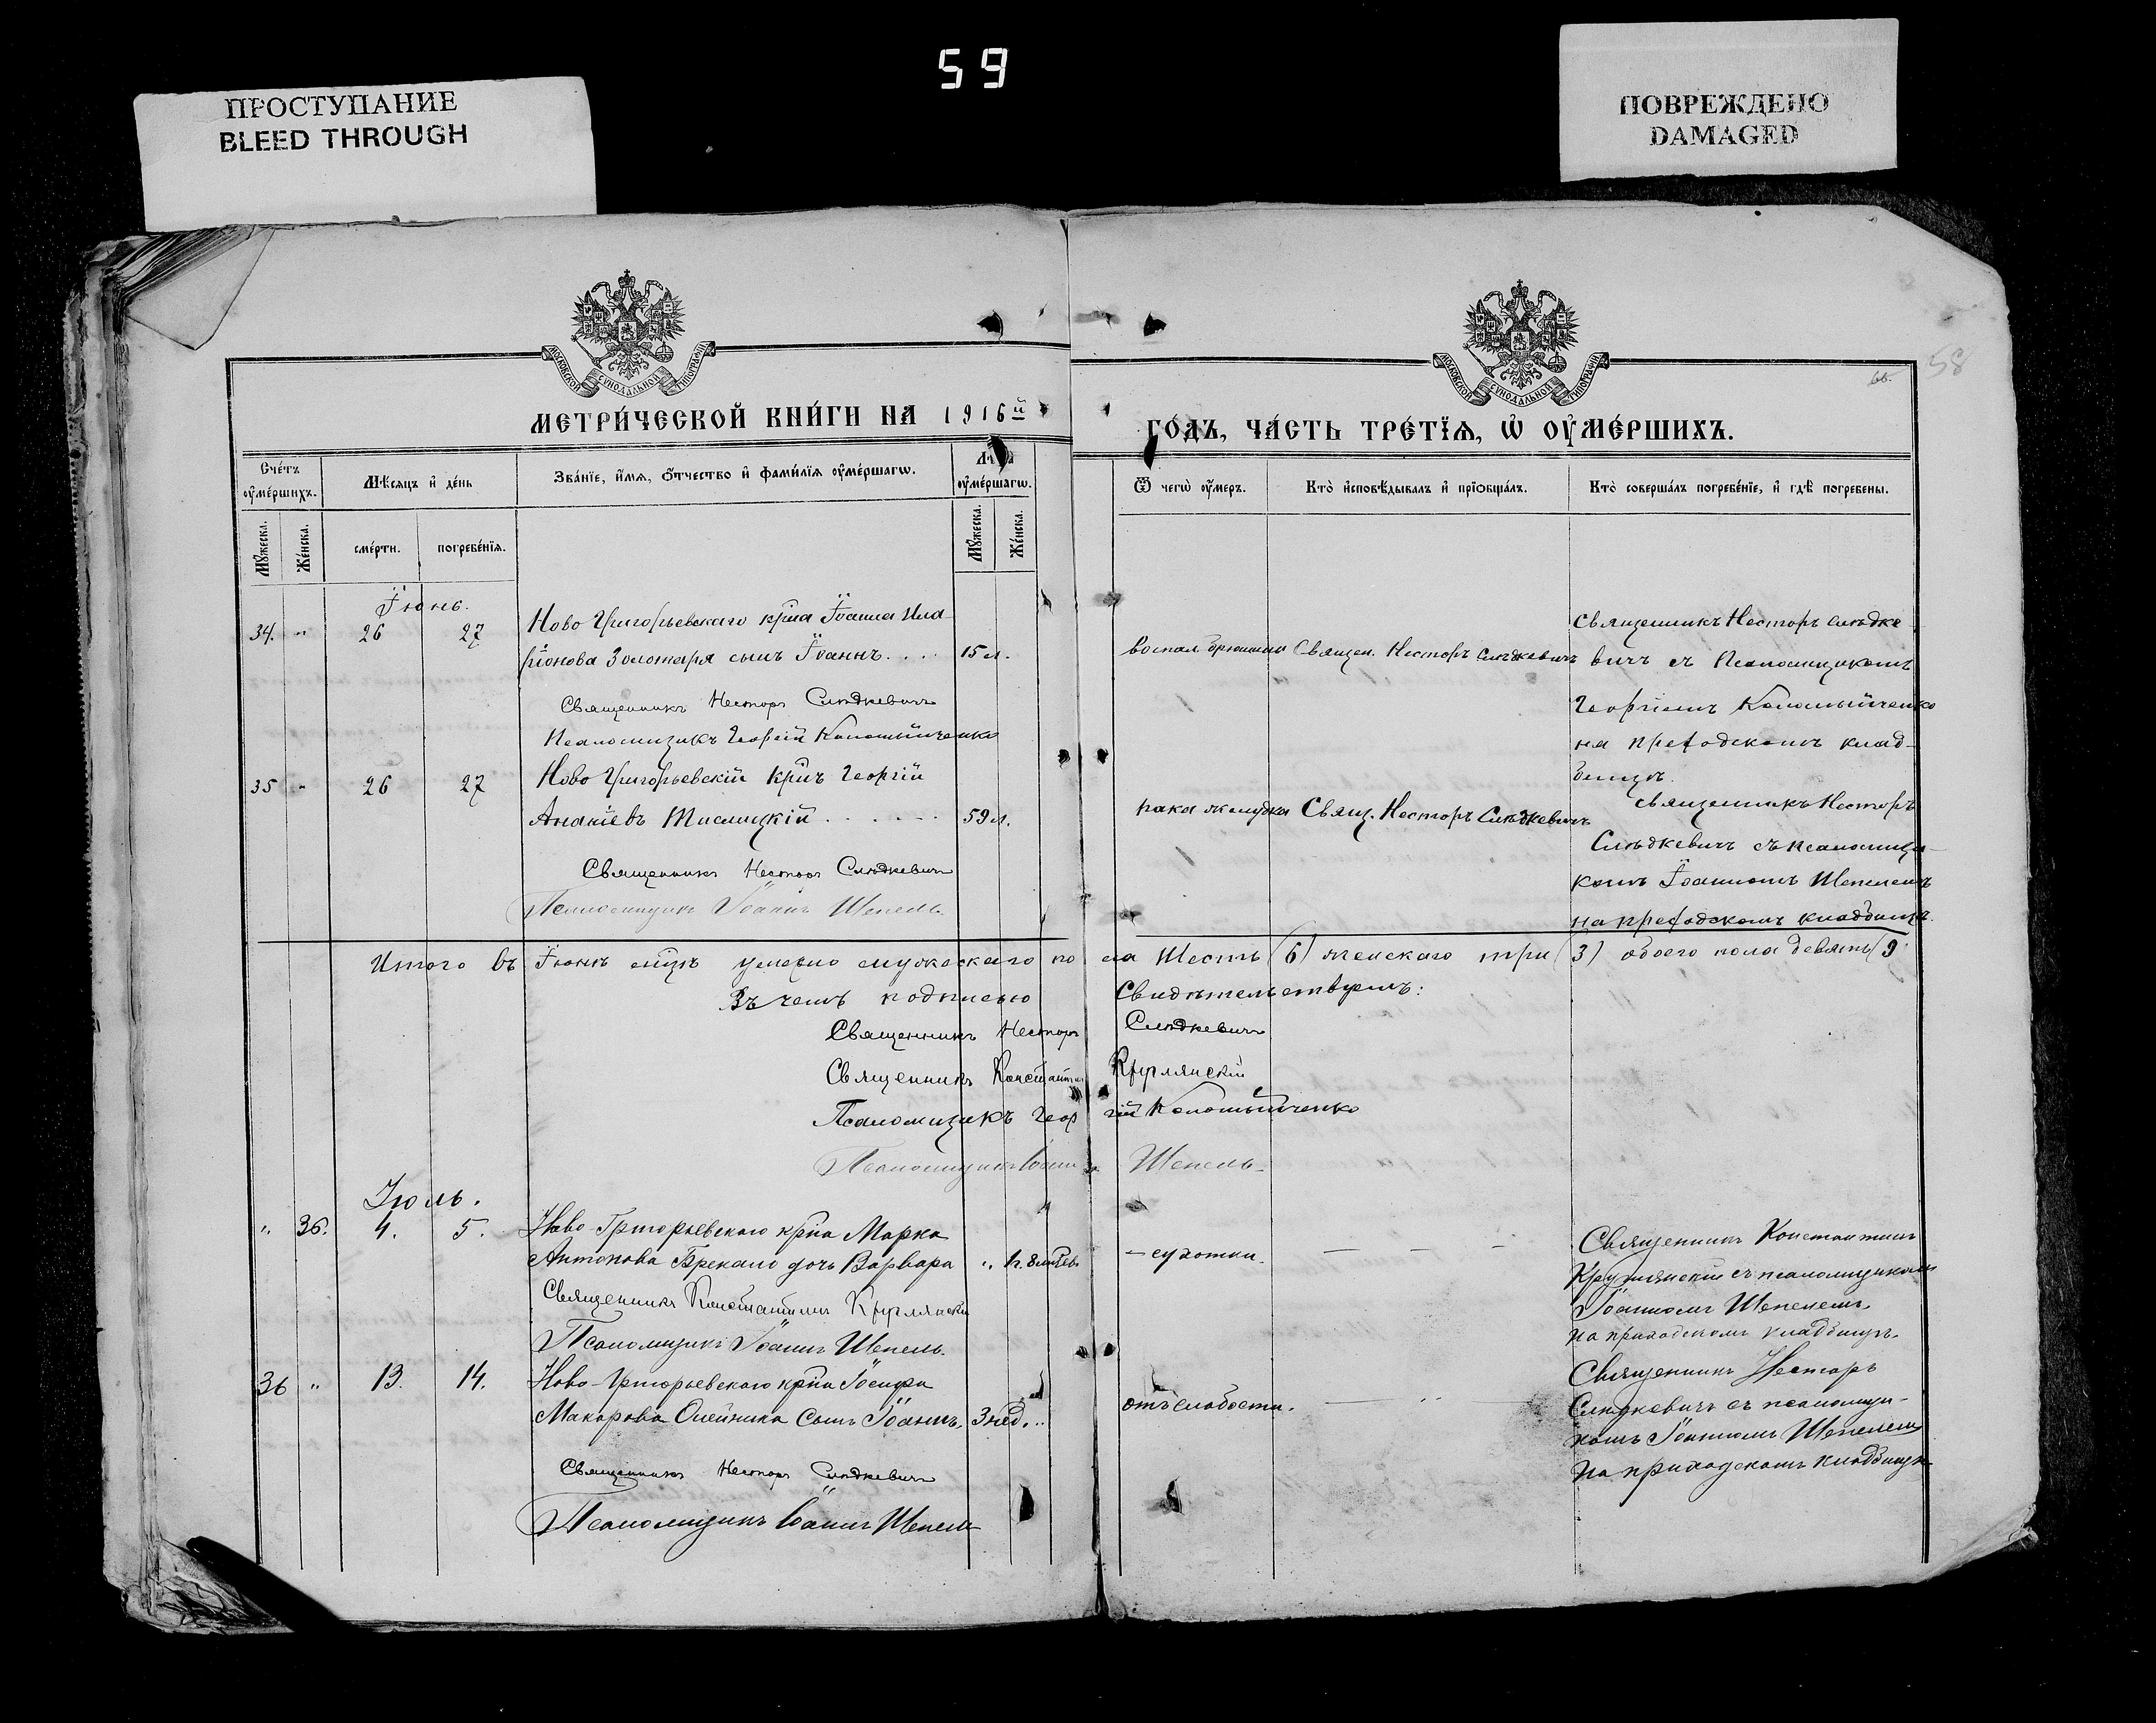 59
ПРОСТУПАНИЕ
BLEED THROUGH
ПОВРЕЖДЕНО
DAMAGED
МОСКОВСКОЙ СѴНОДАЛЬНОЙ ТИПОГРАФІИ
МОСКОВСКОЙ СѴНОДАЛЬНОЙ ТИПОГРАФІИ
58
МЕТРИ́ЧЕСКОЙ КНИ́ГИ НА 1916й
ГО́ДЪ, ЧА́СТЬ ТРЕ́ТЇѦ, Ѡ҆ ОУ҆МЕ́РШИХЪ.
Сче́тъ оу҆ме́ршихъ.
Мѣ́сяцъ и҆ де́нь
Зва́нїе, и҆́мѧ, ѻ҆́тчество и҆ фами́лїѧ оу҆ме́ршагѡ.
Лѣ́та оу҆ме́ршагѡ.
Ѿ чегѡ̀ оу҆́меръ.
Кто̀ и҆сповѣ́дывалъ и҆ прїѡбща́лъ.
Кто̀ соверша́лъ погребе́нїе, и҆ гдѣ̀ погребены.
Мꙋ́жеска.
Же́нска.
сме́рти.
погребе́нїѧ.
Мꙋ́жеска.
Же́нска.
Іюнь.
34. " 26 27 Ново Григорьевскаго крⷭ҇на Іоанна Ила-
ріонова Золотаря сынъ Іоаннъ. . . . 15 л.
Священникъ Несторъ Слѣдкевичъ
Псаломщикъ Георгій Коломыйченко
воспал. брюшины Священ. Несторъ Слѣдкевичъ
Священникъ Несторъ Слѣдке-
вичъ съ Псаломщикомъ
Георгіемъ Коломыйченко
на приходскомъ клад-
бищѣ.
35 " 26 27 Ново Григорьевскій крⷭ҇нъ Георгій
Ананіевъ Тислицкій . . . . . . 59 л.
Священникъ Несторъ Слѣдкевичъ
Псаломщикъ Іоаннъ Шепель.
рака желудка Свящ. Несторъ Слѣдкевичъ
Священникъ Несторъ
Слѣдкевичъ съ псаломщи-
комъ Іоанномъ Шепелемъ
на приходскомъ кладбищѣ.
Итого въ Іюнѣ мѣцѣ умерло мужескаго пола Шесть (6) женскаго три (3) обоего пола девять (9)
Въ чемъ подписью Свидѣтельствуемъ:
Священникъ Несторъ Слѣдкевичъ
Священникъ Константинъ
Псаломщикъ Георгій Коломыйченко
Псаломщикъ Іоаннъ Шепель.
Іюль.
" 36. 4. 5. Ново-Григорьевскаго крⷭ҇на Марка
Антонова дочь Варвара "
Священникъ Константинъ
Псаломщикъ Іоаннъ Шепель.
– сухотки. — — —
Священникъ Константинъ
съ псаломщикомъ
Іоанномъ Шепелемъ
на приходскомъ кладбищѣ.
36 " 13. 14. Ново-Григорьевскаго крⷭ҇на Іосифа
Макарова Олейника сынъ Іоаннъ. 3 нед. "
Священникъ Несторъ Слѣдкевичъ
Псаломщикъ Іоаннъ Шепель
отъ слабости. —
Священникъ Несторъ
Слѣдкевичъ съ псаломщи-
комъ Іоанномъ Шепелемъ
на приходскомъ кладбищѣ